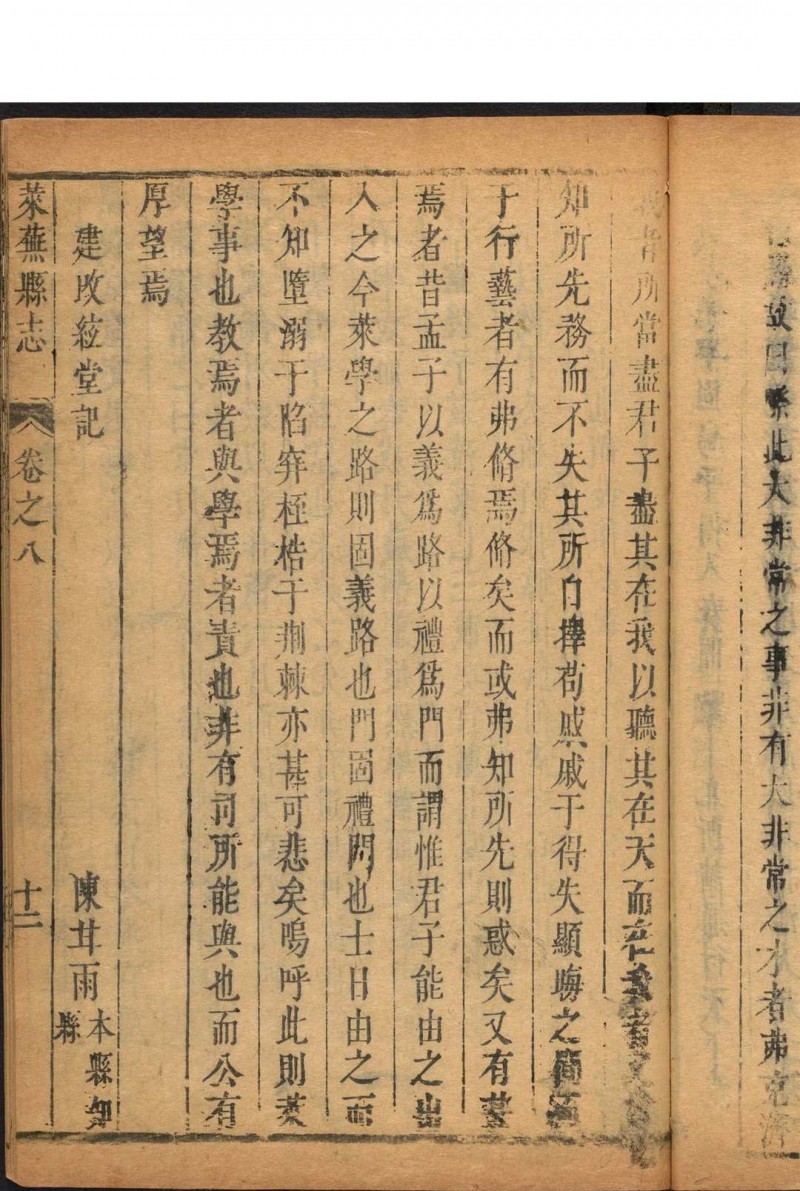 焉故曰縣此大非常之事非有大非常之才者弗克濟
者所當盡君子盡其在我以聽其在天而在我者又
知所先務而不失其所自擇苟戚戚于得失顯晦之間
于行藝者有弗脩焉脩矣而或弗知所先則惑矣又有甚
焉者昔孟子以義爲路以禮爲門而謂惟君子能由之出
入之今萊學之路則固義路也門固禮門也士日由之而
不知墮溺于陷穽桎梏于荆棘亦甚可悲矣嗚呼此則萊
學事也教焉者與學焉者責也非有司所能與也而公有
厚望焉
建改絃堂記 陳甘雨 本縣知縣
萊蕪縣志 卷之八 十二